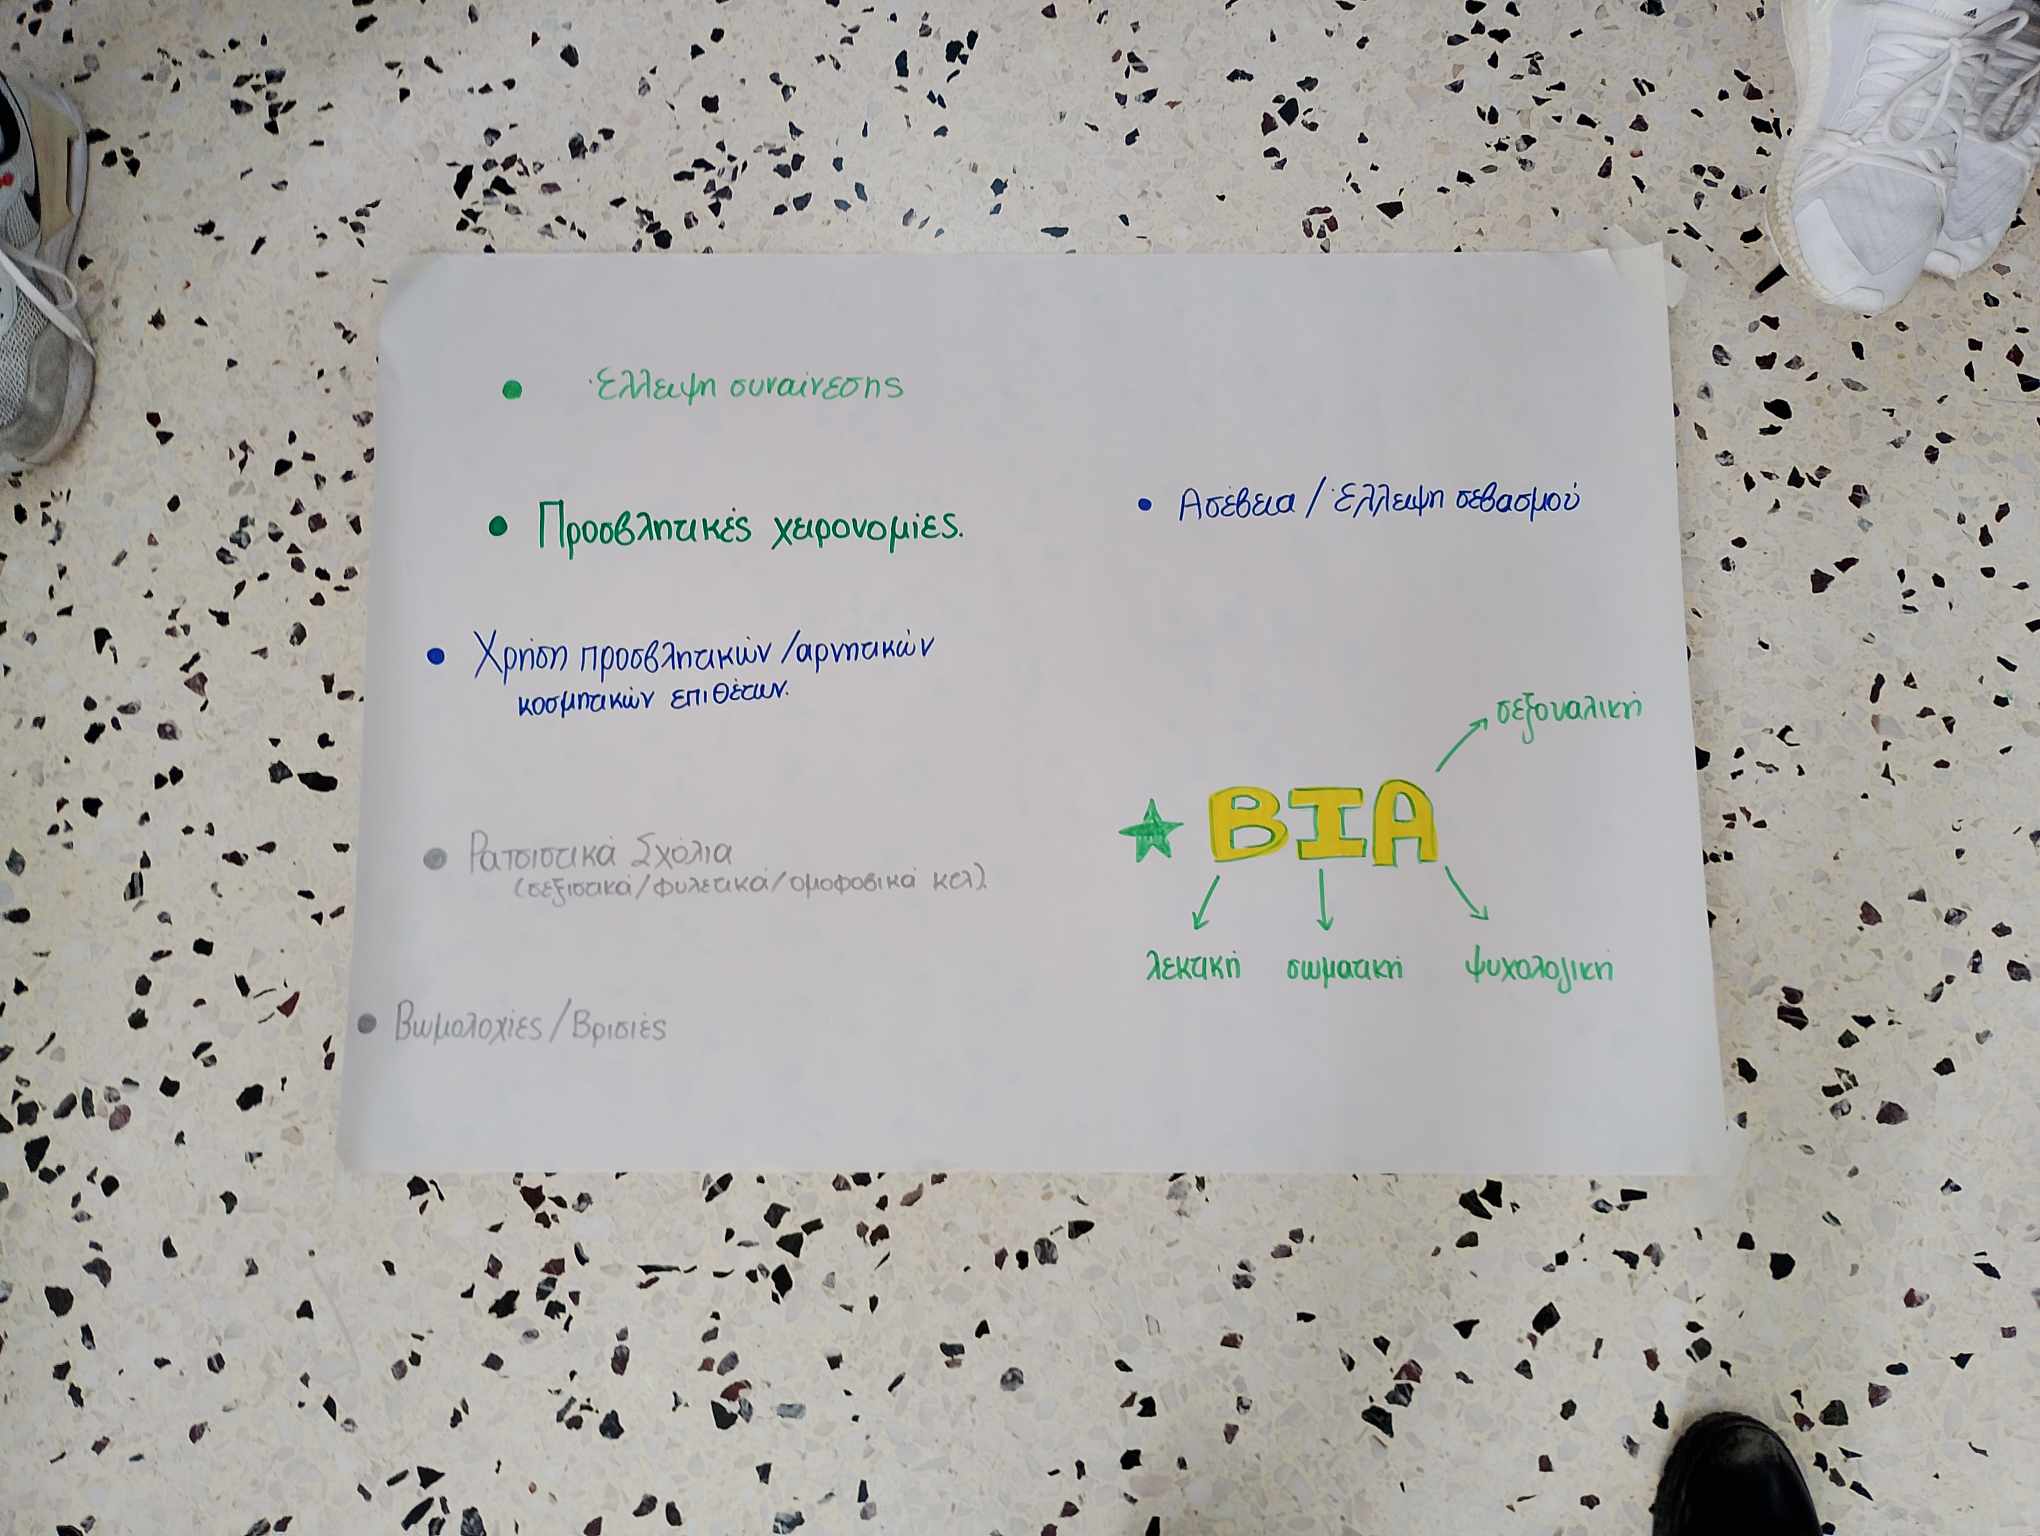 • Έλλειψη συναίνεσης
• Προσβλητικές χειρονομίες.
• Χρήση προσβλητικών / αρνητικών
κοσμητικών επιθέτων.
• Ρατσιστικά Σχόλια
(σεξιστικά/φυλετικά/ομοφοβικά κτλ).
• Βωμολοχίες/Βρισιές
• Ασέβεια / Έλλειψη σεβασμού
σεξουαλική
★ ΒΙΑ
λεκτική σωματική ψυχολογική